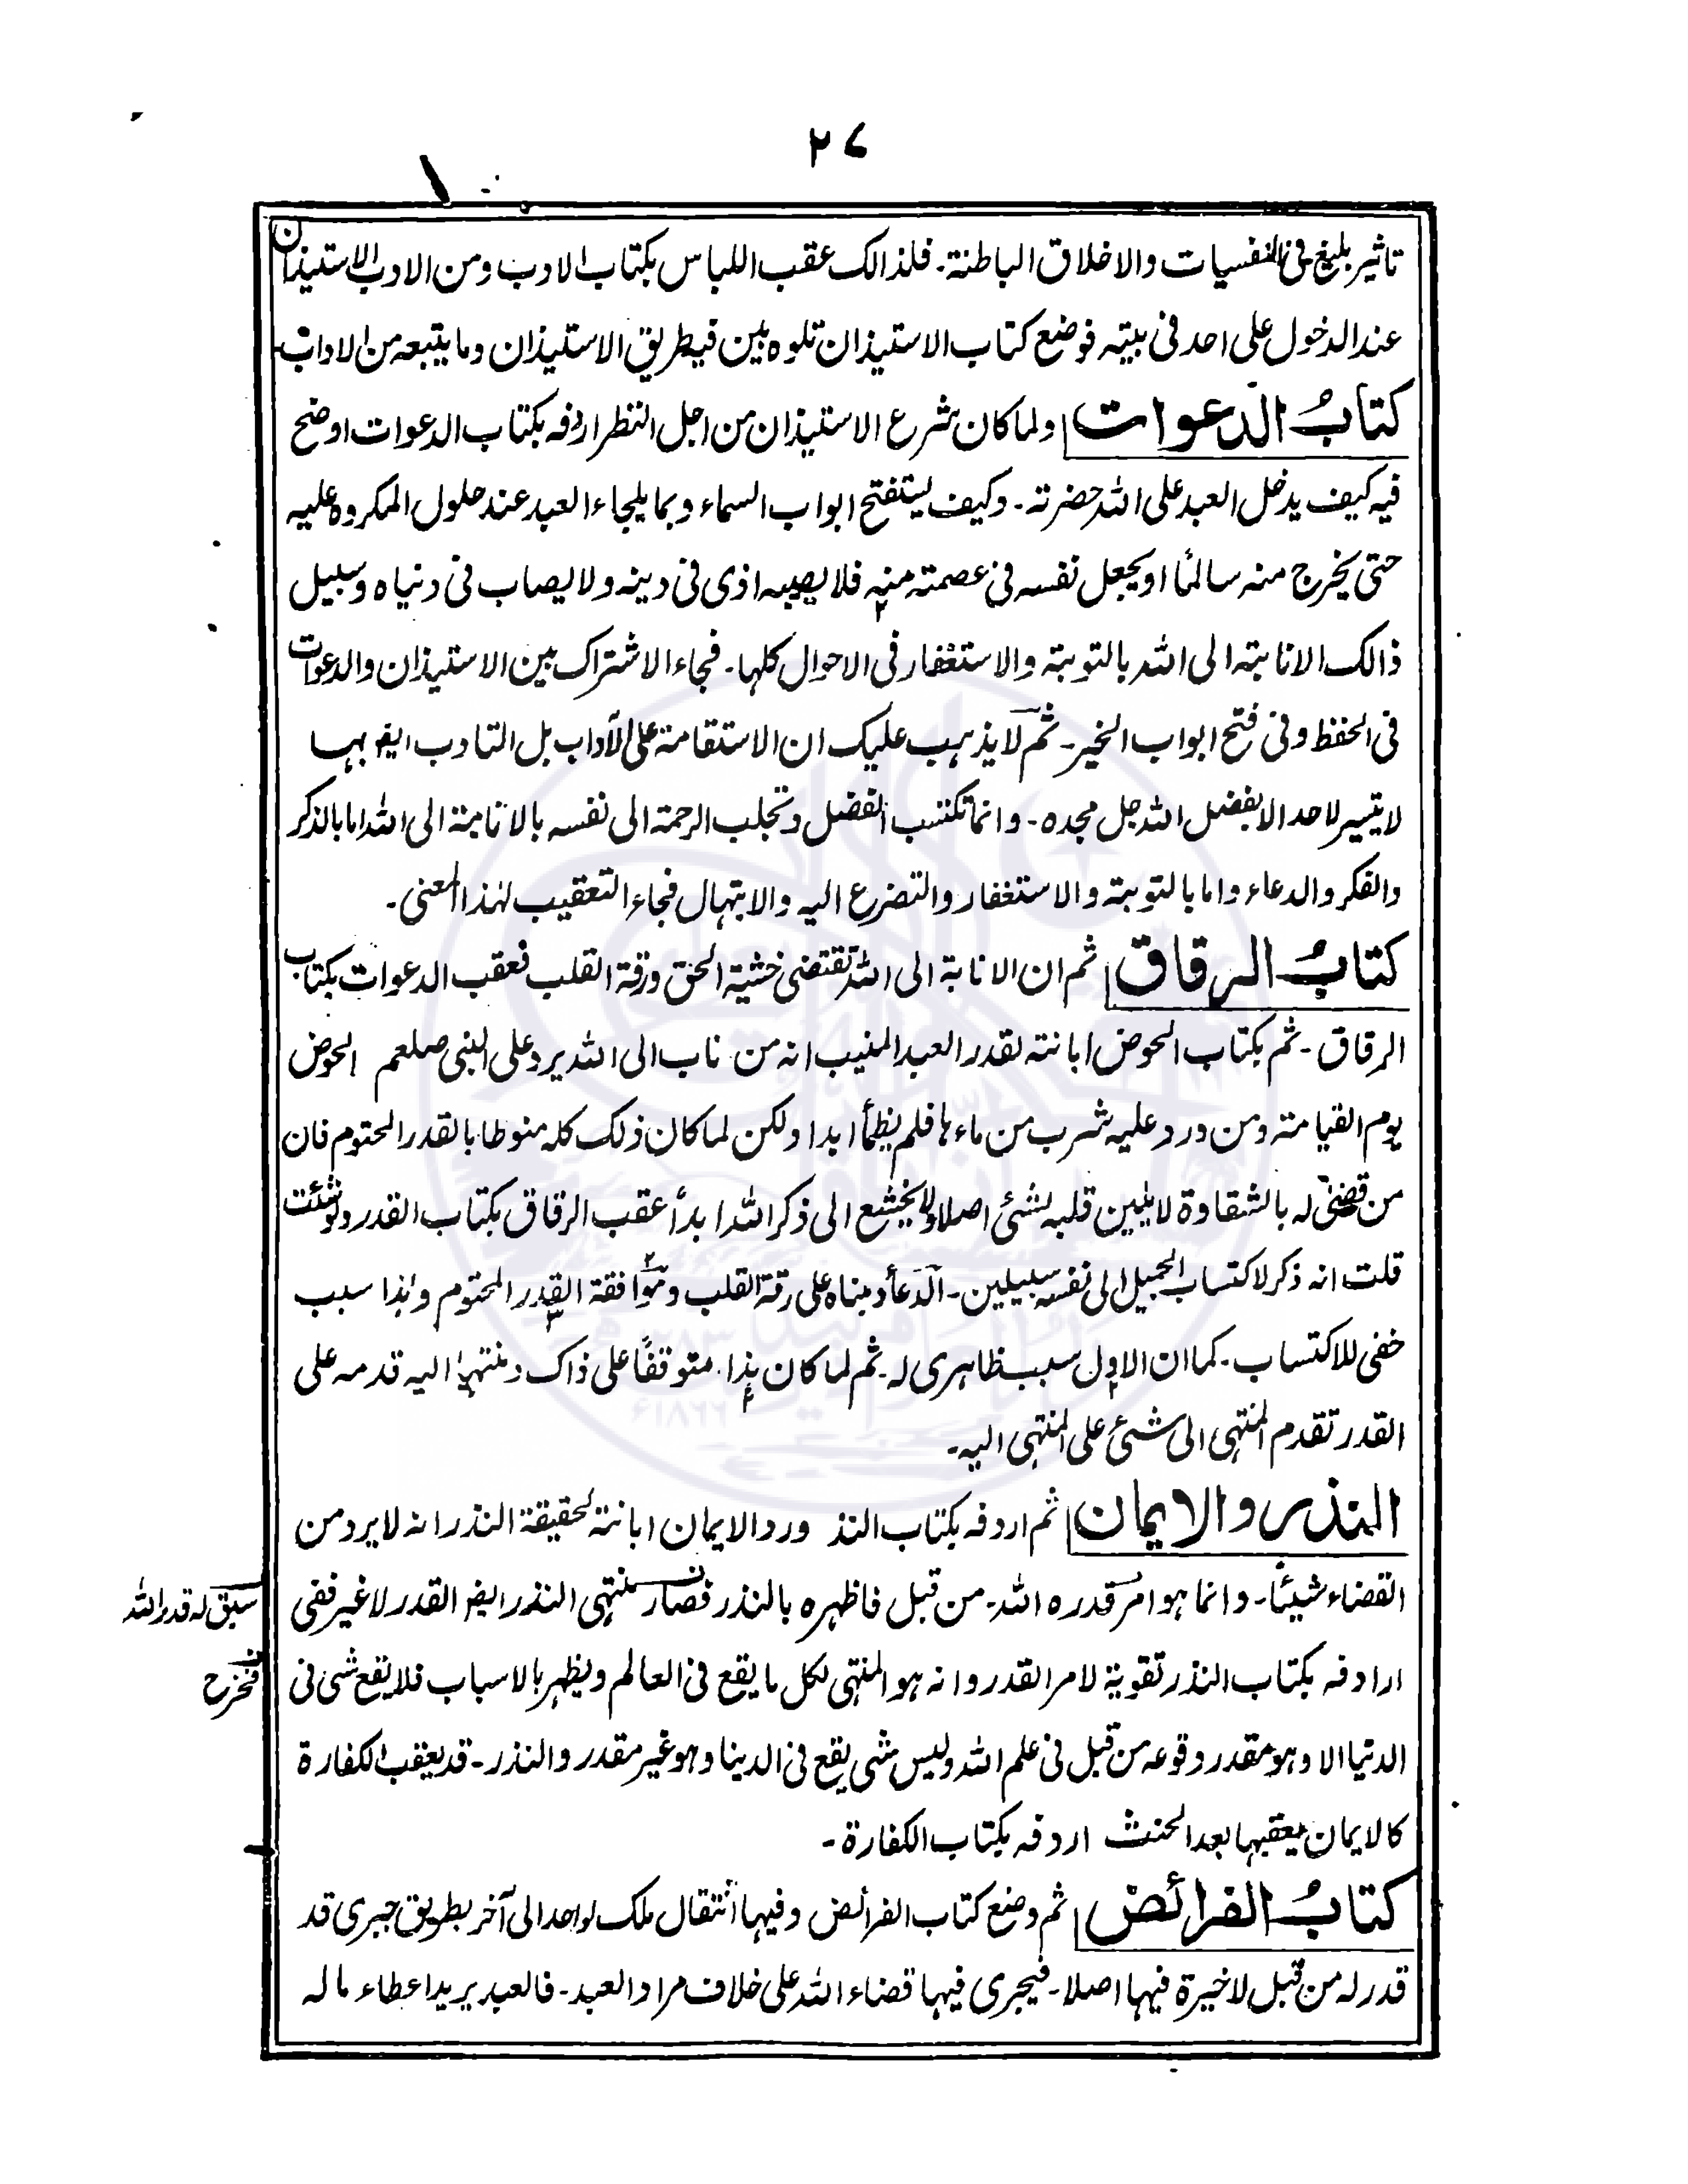 ٢٧
تاثير بليغ فى النفسيات والاخلاق الباطنة۔ فلذالك عقب اللباس بكتاب الادب ومن الادب الاستيذان
عند الدخول على احد فى بيته فوضع كتاب الاستيذان تلوه بين فيه طريق الاستيذان وما يتبعه من الاداب
كتابُ الدعوات ولما كان شرع الاستيذان من اجل النظر اردفه بكتاب الدعوات اوضح
فيه كيف يدخل العبد على الله حضرته۔ وكيف يستفتح ابواب السماء وبما يلجاء العبد عند حلول المكروه عليه
حتى يخرج منه سالمًا او يجعل نفسه فى عصمته منه فلا يصيبه اذى فى دينه ولا يصاب فى دنياه وسبيل
ذالك الانابته الى الله بالتوبته والاستغفار فى الاحوال كلها۔ فجاء الاشتراك بين الاستيذان والدعوات
فى الحفظ وفى فتح ابواب الخير۔ ثم لا يذهب عليك ان الاستقامة على الآداب بل التادب ايضا بها
لا يتيسر لاحد الا بفضل الله جل مجده۔ وانما تكتسب الفضل وتجلب الرحمة الى نفسه بالانابة الى الله اما بالذكر
والفكر والدعاء واما بالتوبته والاستغفار والتضرع اليه والابتهال فجاء التعقيب لهذا المعنى۔
كتابُ الرقاق ثم ان الانابة الى الله تقتضى خشية الحق ورقة القلب فعقب الدعوات بكتاب
الرقاق۔ ثم بكتاب الحوض ابانته لقدر العبد المنيب انه من ناب الى الله يرد على النبى صلعم الحوض
يوم القيامته ومن ورد عليه شرب من ماءها فلم يظمأ ابدا ولكن لما كان ذلك كله منوطا بالقدر المحتوم فان
من قضى له بالشقاوة لا يلين قلبه لشئ اصلا ولا يخشع الى ذكر الله ابدأ عقب الرقاق بكتاب القدر ولو شئت
قلت انه ذكر لاكتساب الجميل الى نفسه سبيلين۔ الدعأ ومبناه على رقة القلب وموافقة القدر المحتوم وہذا سبب
خفى للاكتساب۔ كما ان الاول سبب ظاهرى له۔ ثم لما كان ہذا متوقفًا على ذاك ومنتهيًا اليه قدمه على
القدر تقدم المنتهى الى شئ على المنتهى اليه۔
النذر والايمان ثم اردفه بكتاب النذ ورد الايمان ابانته لحقيقة النذر انه لا يرد من
القضاء شيئًا۔ وانما هو امر قدره الله۔ من قبل فاظهره بالنذر فصار منتهى النذر ايضا القدر لا غير ففى
سبق له قدر الله
اردافه بكتاب النذر تقوية لامر القدر وانه هو المنتهى لكل ما يقع فى العالم ويظهر بالاسباب فلا يقع شى فى
فخرج
الدنيا الا وهو مقدر وقوعه من قبل فى علم الله وليس شى يقع فى الدينا وهو غير مقدر والنذر۔ قد يعقب الكفارة
كالايمان يعقبها بعد الحنث اردفه بكتاب الكفارة۔
كتابُ الفرائض ثم وضع كتاب الفرائض وفيها انتقال ملك لواحد الى آخر بطريق جبرى قد
قدر له من قبل لا خيرة فيها اصلا۔ فيجرى فيها قضاء الله على خلاف مراد العبد۔ فالعبد يريد اعطاء ماله